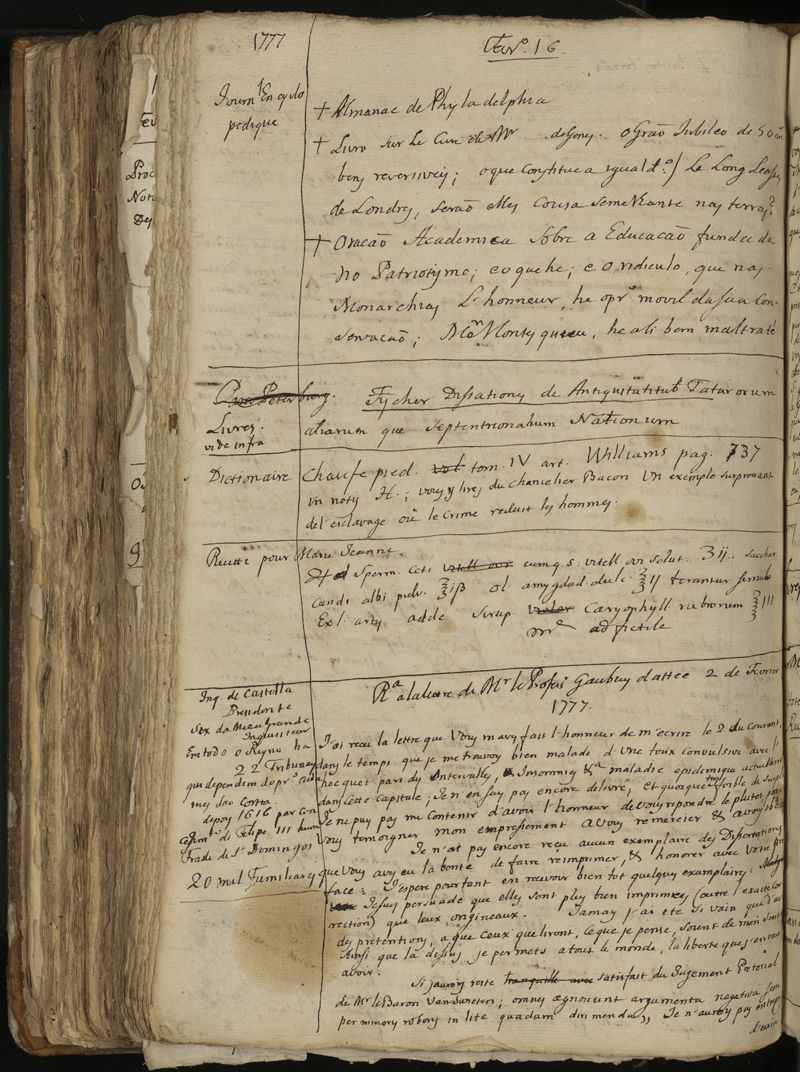 1777
Fevrº. 16
Journ¹ Encyclo
pedique
+ Almanac de Phyladelphia
+ Livro sur Le Cure de Mr de Gony. o Grão Jubileo de 50 an
bens reversiveis; o que constitue a igual dª / Le Long Leases
de Londres, serão elles cousa semelhante nas terras?
+ Oracão Academica sobre a Educacão fundada
no Patriotismo; e o que he; e o ridiculo, que nas
Monarchias L'honneur, he o prº movil da sua con-
servacão; Mon Montesquieu, he ali bem maltraté
Petersbourg.
Livres.
vide infra
Fischer Dissations de Antiquitatitub Tatarorum
aliarum que Septentrionalium Nationum
Dictionaire
Chaufepied. vol tom. IV art. Williams pag. 737
in nots H.; voyes y lires du chancelier Bacon un exemple surprenant
de l'esclavage où le crime reduit les hommes.
Recette pour Marie Jeanne.
Sperm. Ceti vitell ovi cum q. s. vitell. ovi solut. Ʒij. sacchar
candi albi pulv. ℥iß ol. amygdal. dulc. ℥ij terantur simul
Ex l. artis adde Sirup violar Caryophyll rubrorum ℥iii
mr ad fictile
Inq. de Castella
Presidente
Sex da Meu Grande
Inquisiteur
Em todo o Reyno ha
22 Tribunaes
que dependem do prº
mes dao Conta.
depois 1616 par Con
de Felipe III hum
Frade de St Domingos
20 mil Familiares
Rª a la lettre de Mr le Profesr Gaubuy dattée 2 de Fevrier
1777.
J'ai recu la lettre que Vous m'avez fait l'honneur de m'ecrire le 2 du Courant,
dans le temps que je me trouvoy bien malade d'une toux convulsive avec le
hocquet par des Intervalles, & Insomnies &ª maladie epidemique actuellement
dans cette Capitale; Je n'en suy pas encore delivré, et quoique trop foible
Je ne puy pas me contenir d'avoir l'honneur de vous repondre le plutot
Vous temoigner mon empressement a Vous remercier &
Je n'ai pas encore reçu aucun exemplaire des Dissertations
que Vous avez eu la bonté de faire reimprimer, & honorer avec Votre pre
face: J'espere pourtant en recevoir bien tot quelques exemplaires:
Je suy persuadé que elles sont plus bien imprimées (outre l'exacte cor
rection) que leux origineaux. Jamay j'ai eté si vain que d'avoir
des pretentions, a que ceux que liront, ce que je pense, soient de mon sent
Ainsi que la dessus je permets a tout le monde, la liberté que j'en
avoir.
Si j'auroy resté tranquille avec satisfait du Jugement Pretorial
de Mr le Baron Van Swieten; omnes agnoscunt argumenta negativa sem
per minory robory in lite quadam dirimenda,, Je n'auroy pas entrepr
d'ecrire